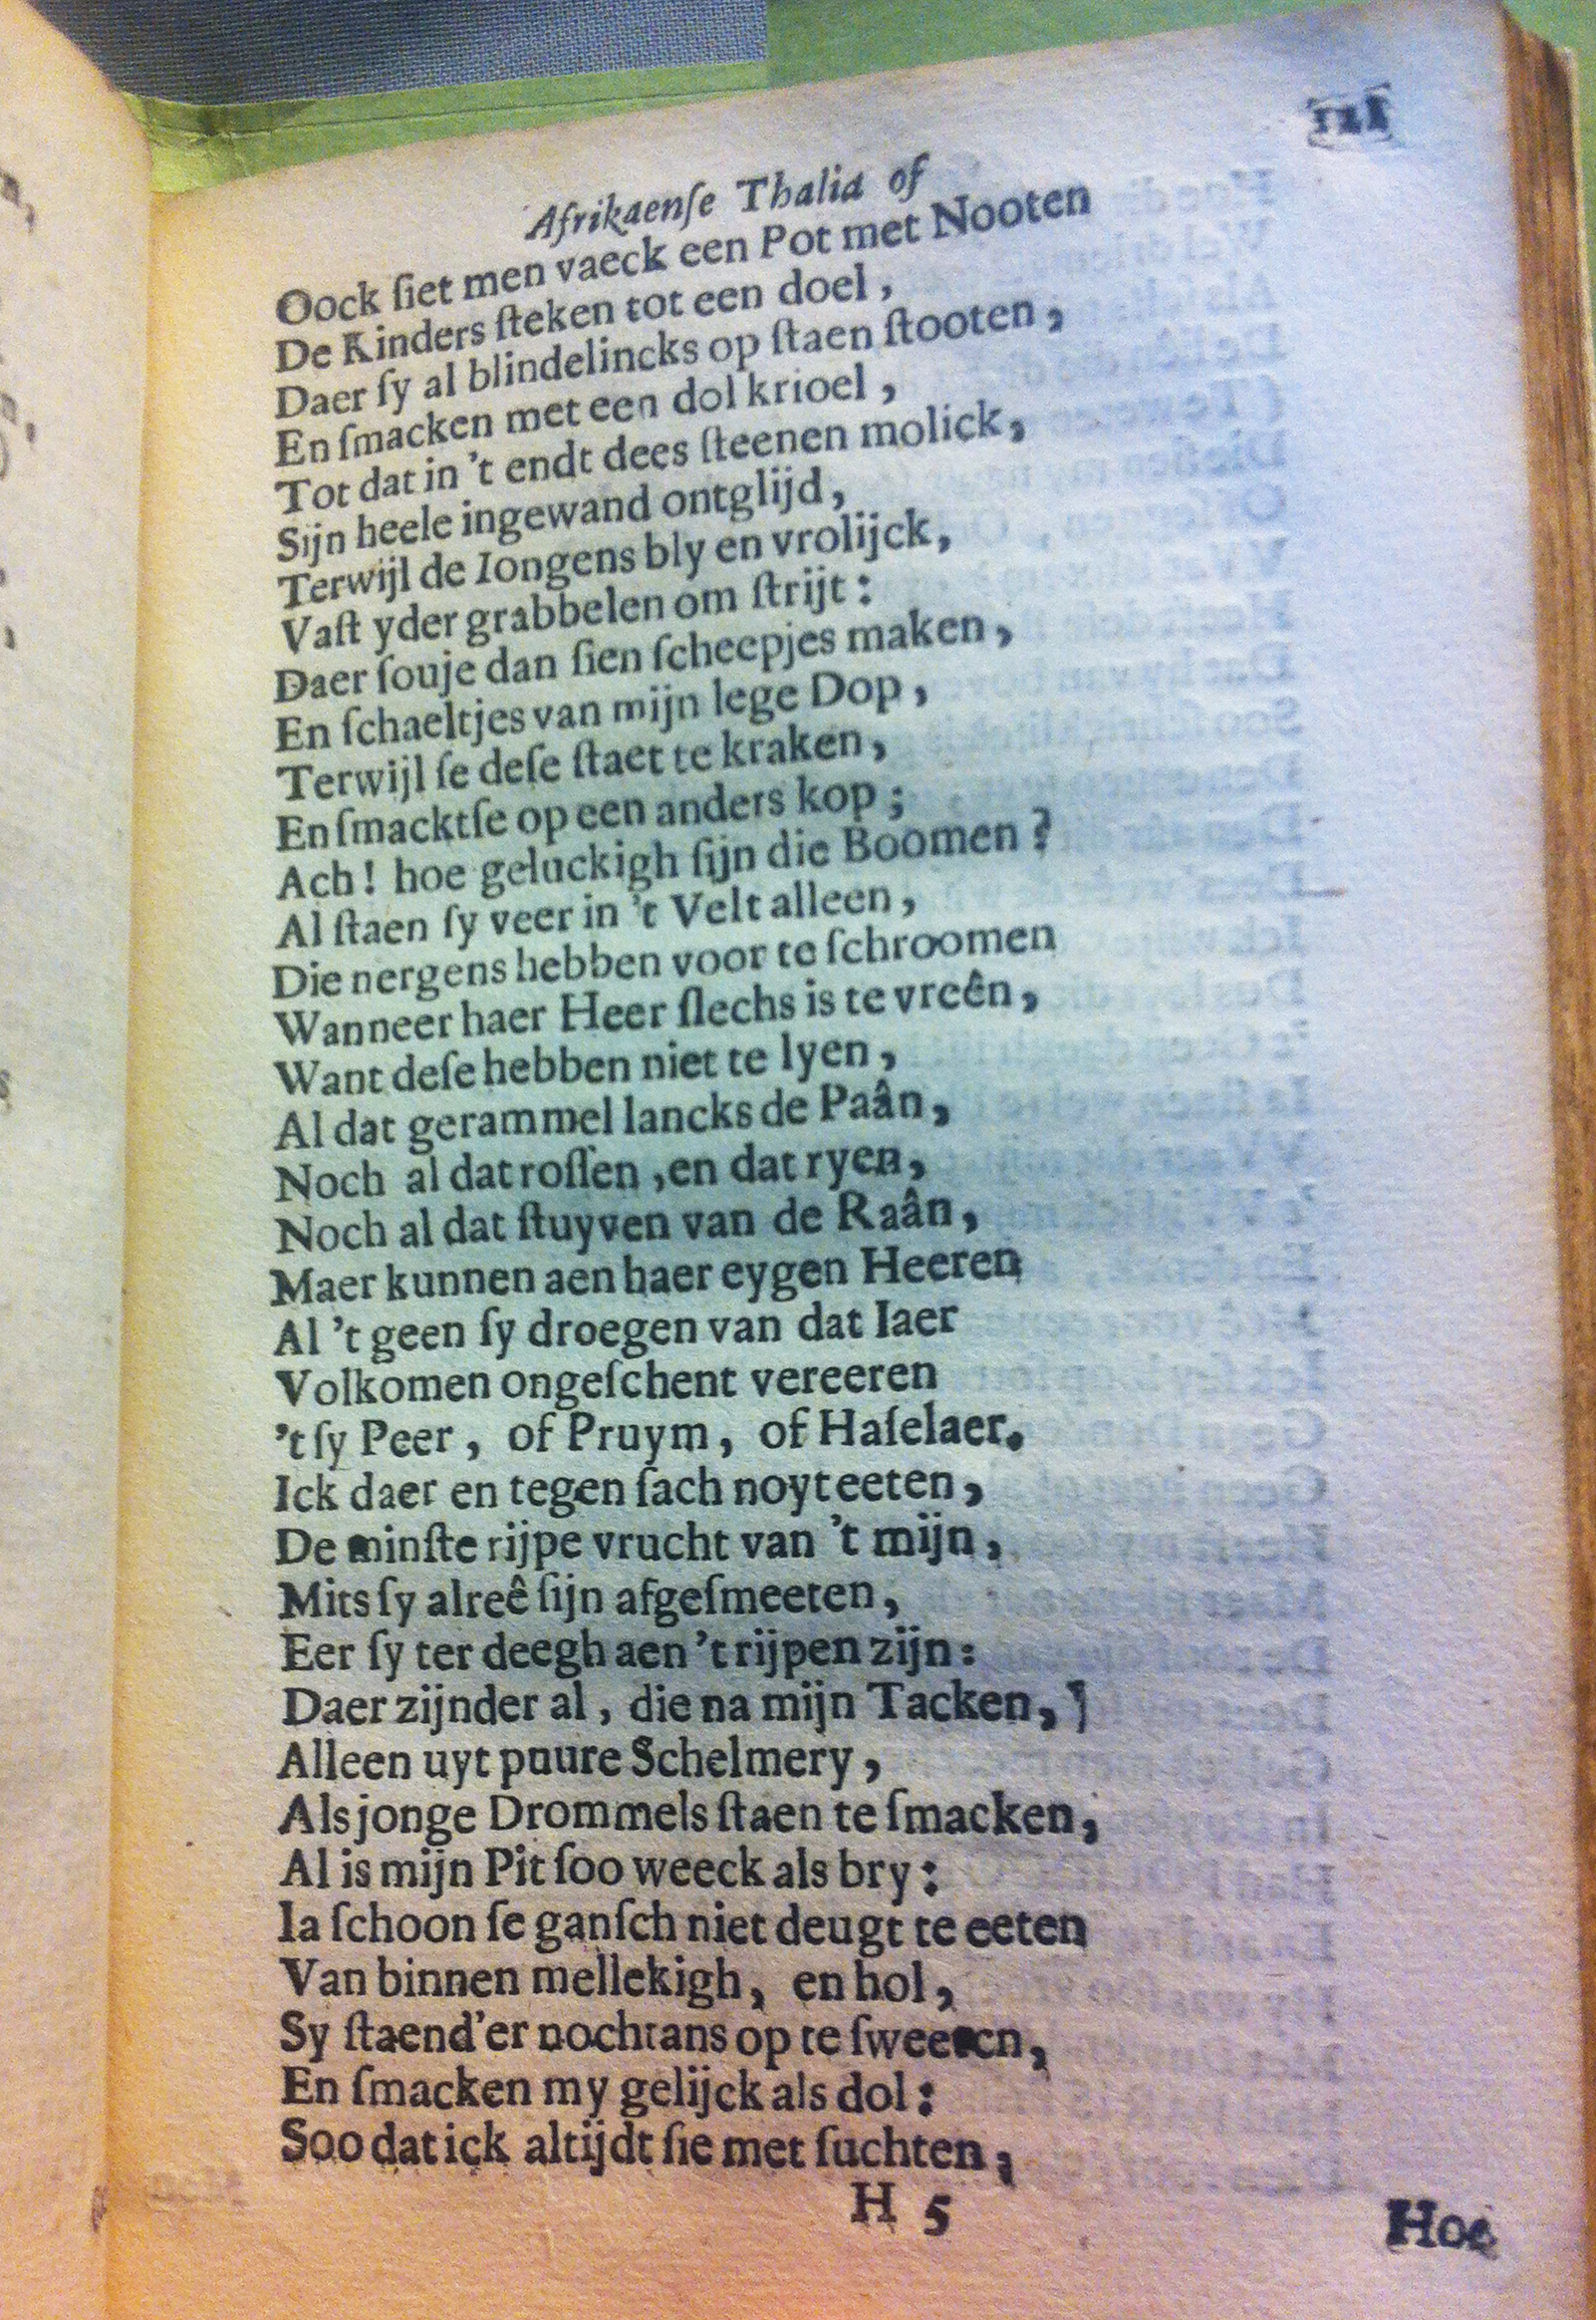 121
Afrikaenſe Thalia of
Oock ſiet men vaeck een Pot met Nooten
De Kinders ſteken tot een doel,
Daer ſy al blindelincks op ſtaen ſtooten,
En ſmacken met een dol krioel,
Tot dat in 't endt dees ſteenen molick,
Sijn heele ingewand ontglijd,
Terwijl de Iongens bly en vrolijck,
Vaſt yder grabbelen om ſtrijt:
Daer ſouje dan ſien ſcheepjes maken,
En ſchaeltjes van mijn lege Dop,
Terwijl ſe deſe ſtaet te kraken,
En ſmacktſe op een anders kop;
Ach! hoe geluckigh ſijn die Boomen?
Al ſtaen ſy veer in 't Velt alleen,
Die nergens hebben voor te ſchroomen
Wanneer haer Heer ſlechs is te vreên,
Want deſe hebben niet te lyen,
Al dat gerammel lancks de Paân,
Noch al dat roſſen, en dat ryen,
Noch al dat ſtuyven van de Raân,
Maer kunnen aen haer eygen Heeren
Al 't geen ſy droegen van dat Iaer
Volkomen ongeſchent vereeren
't ſy Peer, of Pruym, of Haſelaer.
Ick daer en tegen ſach noyt eeten,
De minſte rijpe vrucht van 't mijn,
Mits ſy alreê ſijn afgeſmeeten,
Eer ſy ter deegh aen 't rijpen zijn:
Daer zijnder al, die na mijn Tacken,
Alleen uyt puure Schelmery,
Als jonge Drommels ſtaen te ſmacken,
Al is mijn Pit ſoo weeck als bry:
Ia ſchoon ſe ganſch niet deugt te eeten
Van binnen mellekigh, en hol,
Sy ſtaend'er nochtans op te
En ſmacken my gelijck als dol:
Soo dat ick altijdt ſie met ſuchten,
H 5
Hoe